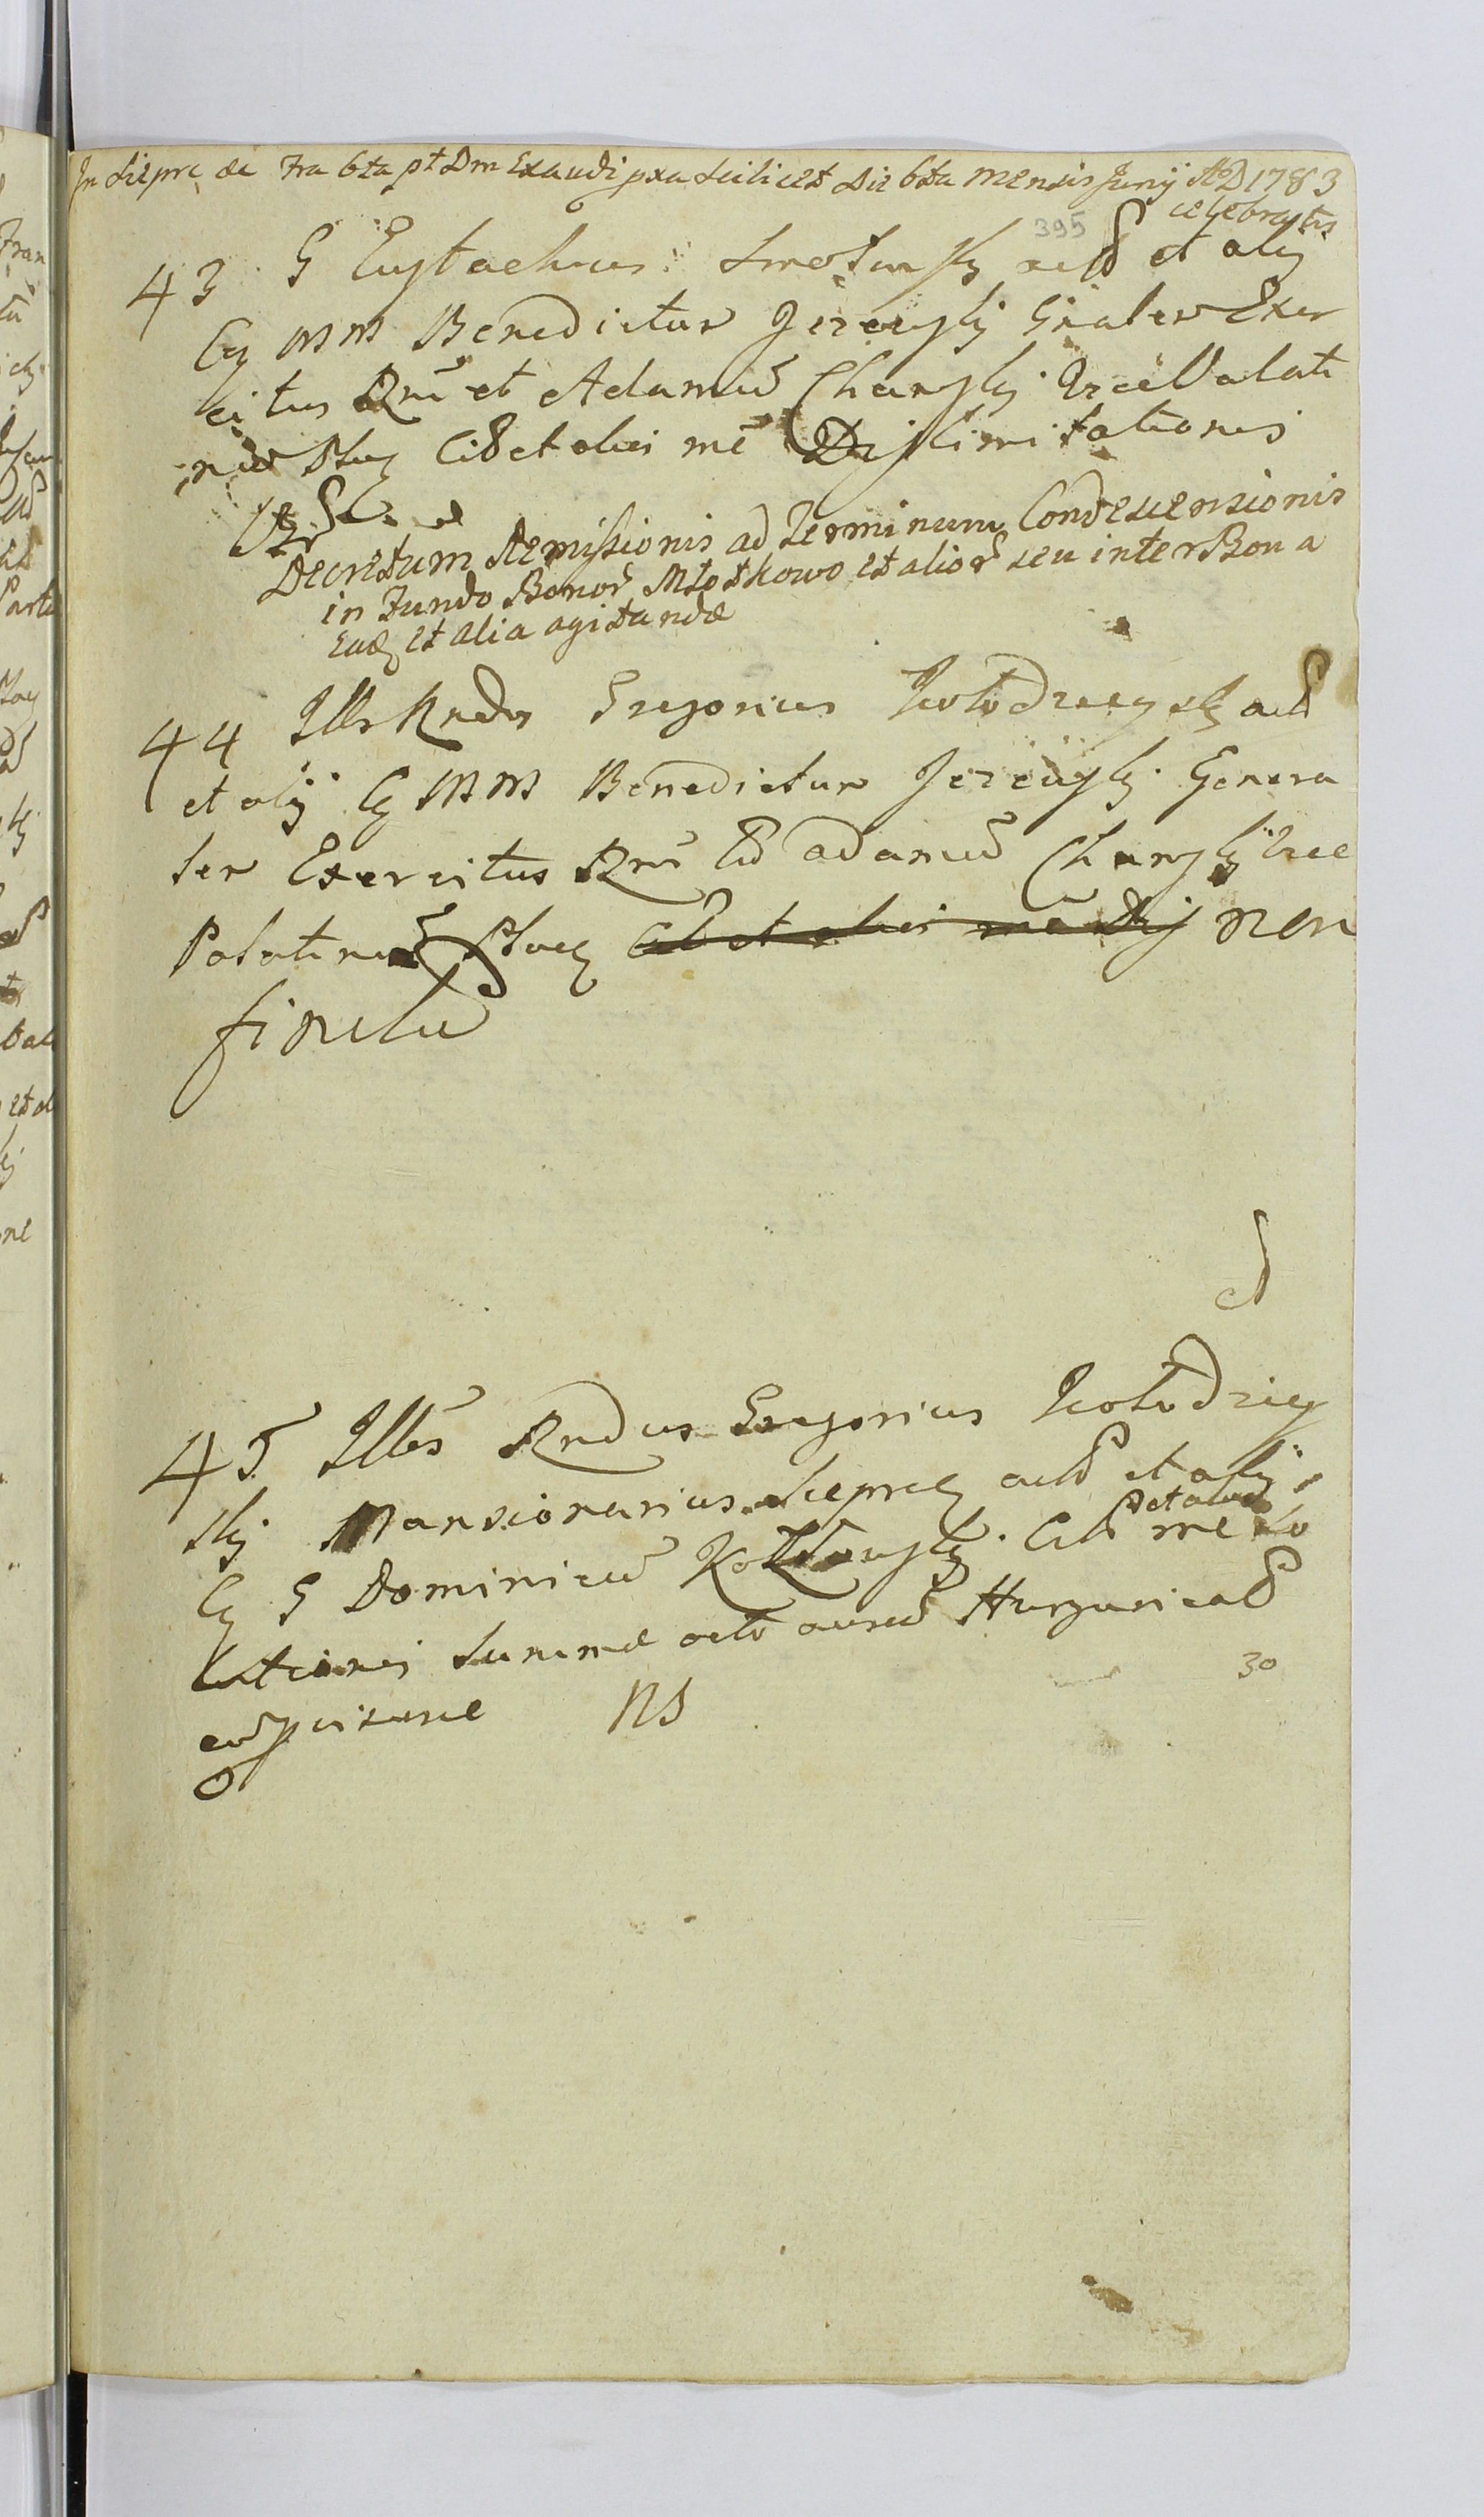 In Sieprc de Fra 6ta pt Dm Exaudi pxa scilicet Die 6ta Mensis Junij AD 1783
celebratis
395
43 G Eustachius act et alij
Cg MM Benedictum Jezewski Gnalem Exer
citus Rni et Adamum Charski Vice Palati
num Plocg Cit et alios me Dislimitationis
Decretum Remissionis ad Terminum Condescensionis
in Fundo Bonor Młotkowo et alior seu inter Bona
Ead et alia agitandae
44 Illr Rndus Gregorius act
et alij Cg MM Benedictum Jezewski Genera
lem Exercitus Rni Ad adamum Charski Vice
Palatinum Plocg Cit et alios me Dis non
finitum
45 Illris Rndus Gregorius Kołodziey
ski Mansionarius Sieprcg act et alij
Cg G Dominicum Cit et alios me So
lutionis Summae octo aureor Hungaricad
NS
30